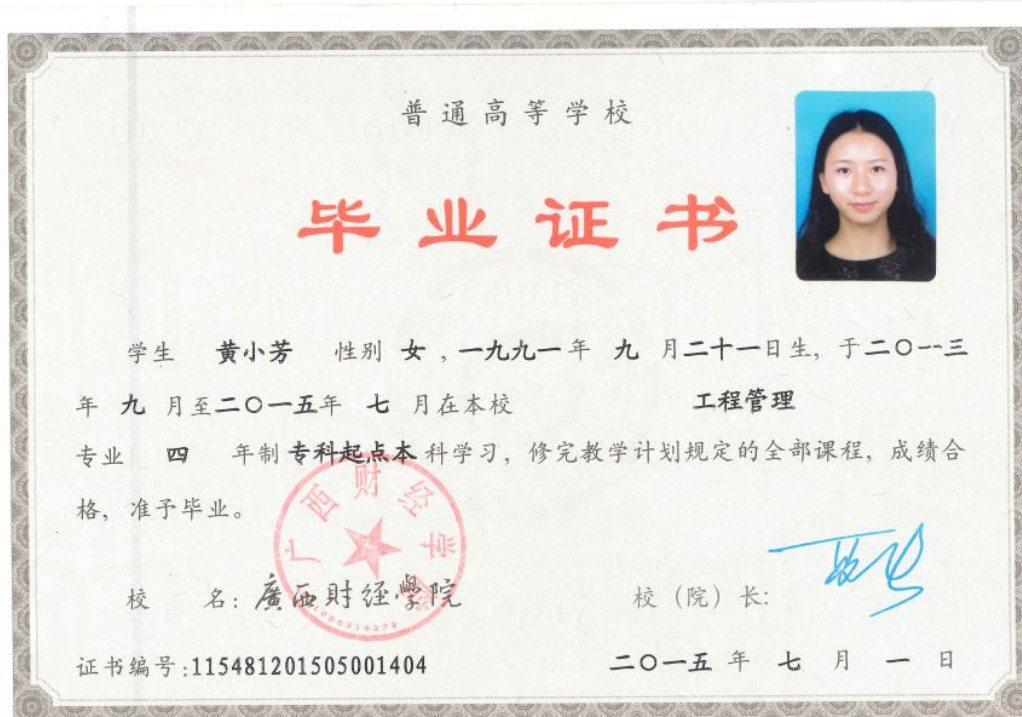 普通高等学校
毕业证书
学生 黄小芳 性别 女，一九九一年 九 月二十一日生，于二〇一三
年 九 月至二〇一五年 七 月在本校 工程管理
专业 四 年制 专科起点本 科学习，修完教学计划规定的全部课程，成绩合
格，准予毕业。
广西财经学院
校 名：廣西财经學院
校（院）长：
证书编号：115481201505001404
二〇一五 年 七 月 一 日